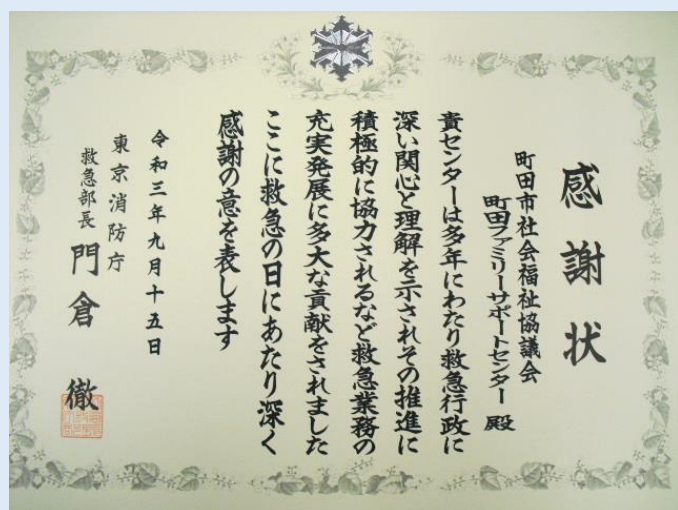 感謝状
町田市社会福祉協議会
町田ファミリーサポートセンター 殿
貴センターは多年にわたり救急行政に
深い関心と理解を示されその推進に
積極的に協力されるなど救急業務の
充実発展に多大な貢献をされました
ここに救急の日にあたり深く
感謝の意を表します
令和三年九月十五日
東京消防庁
救急部長 門倉 徹